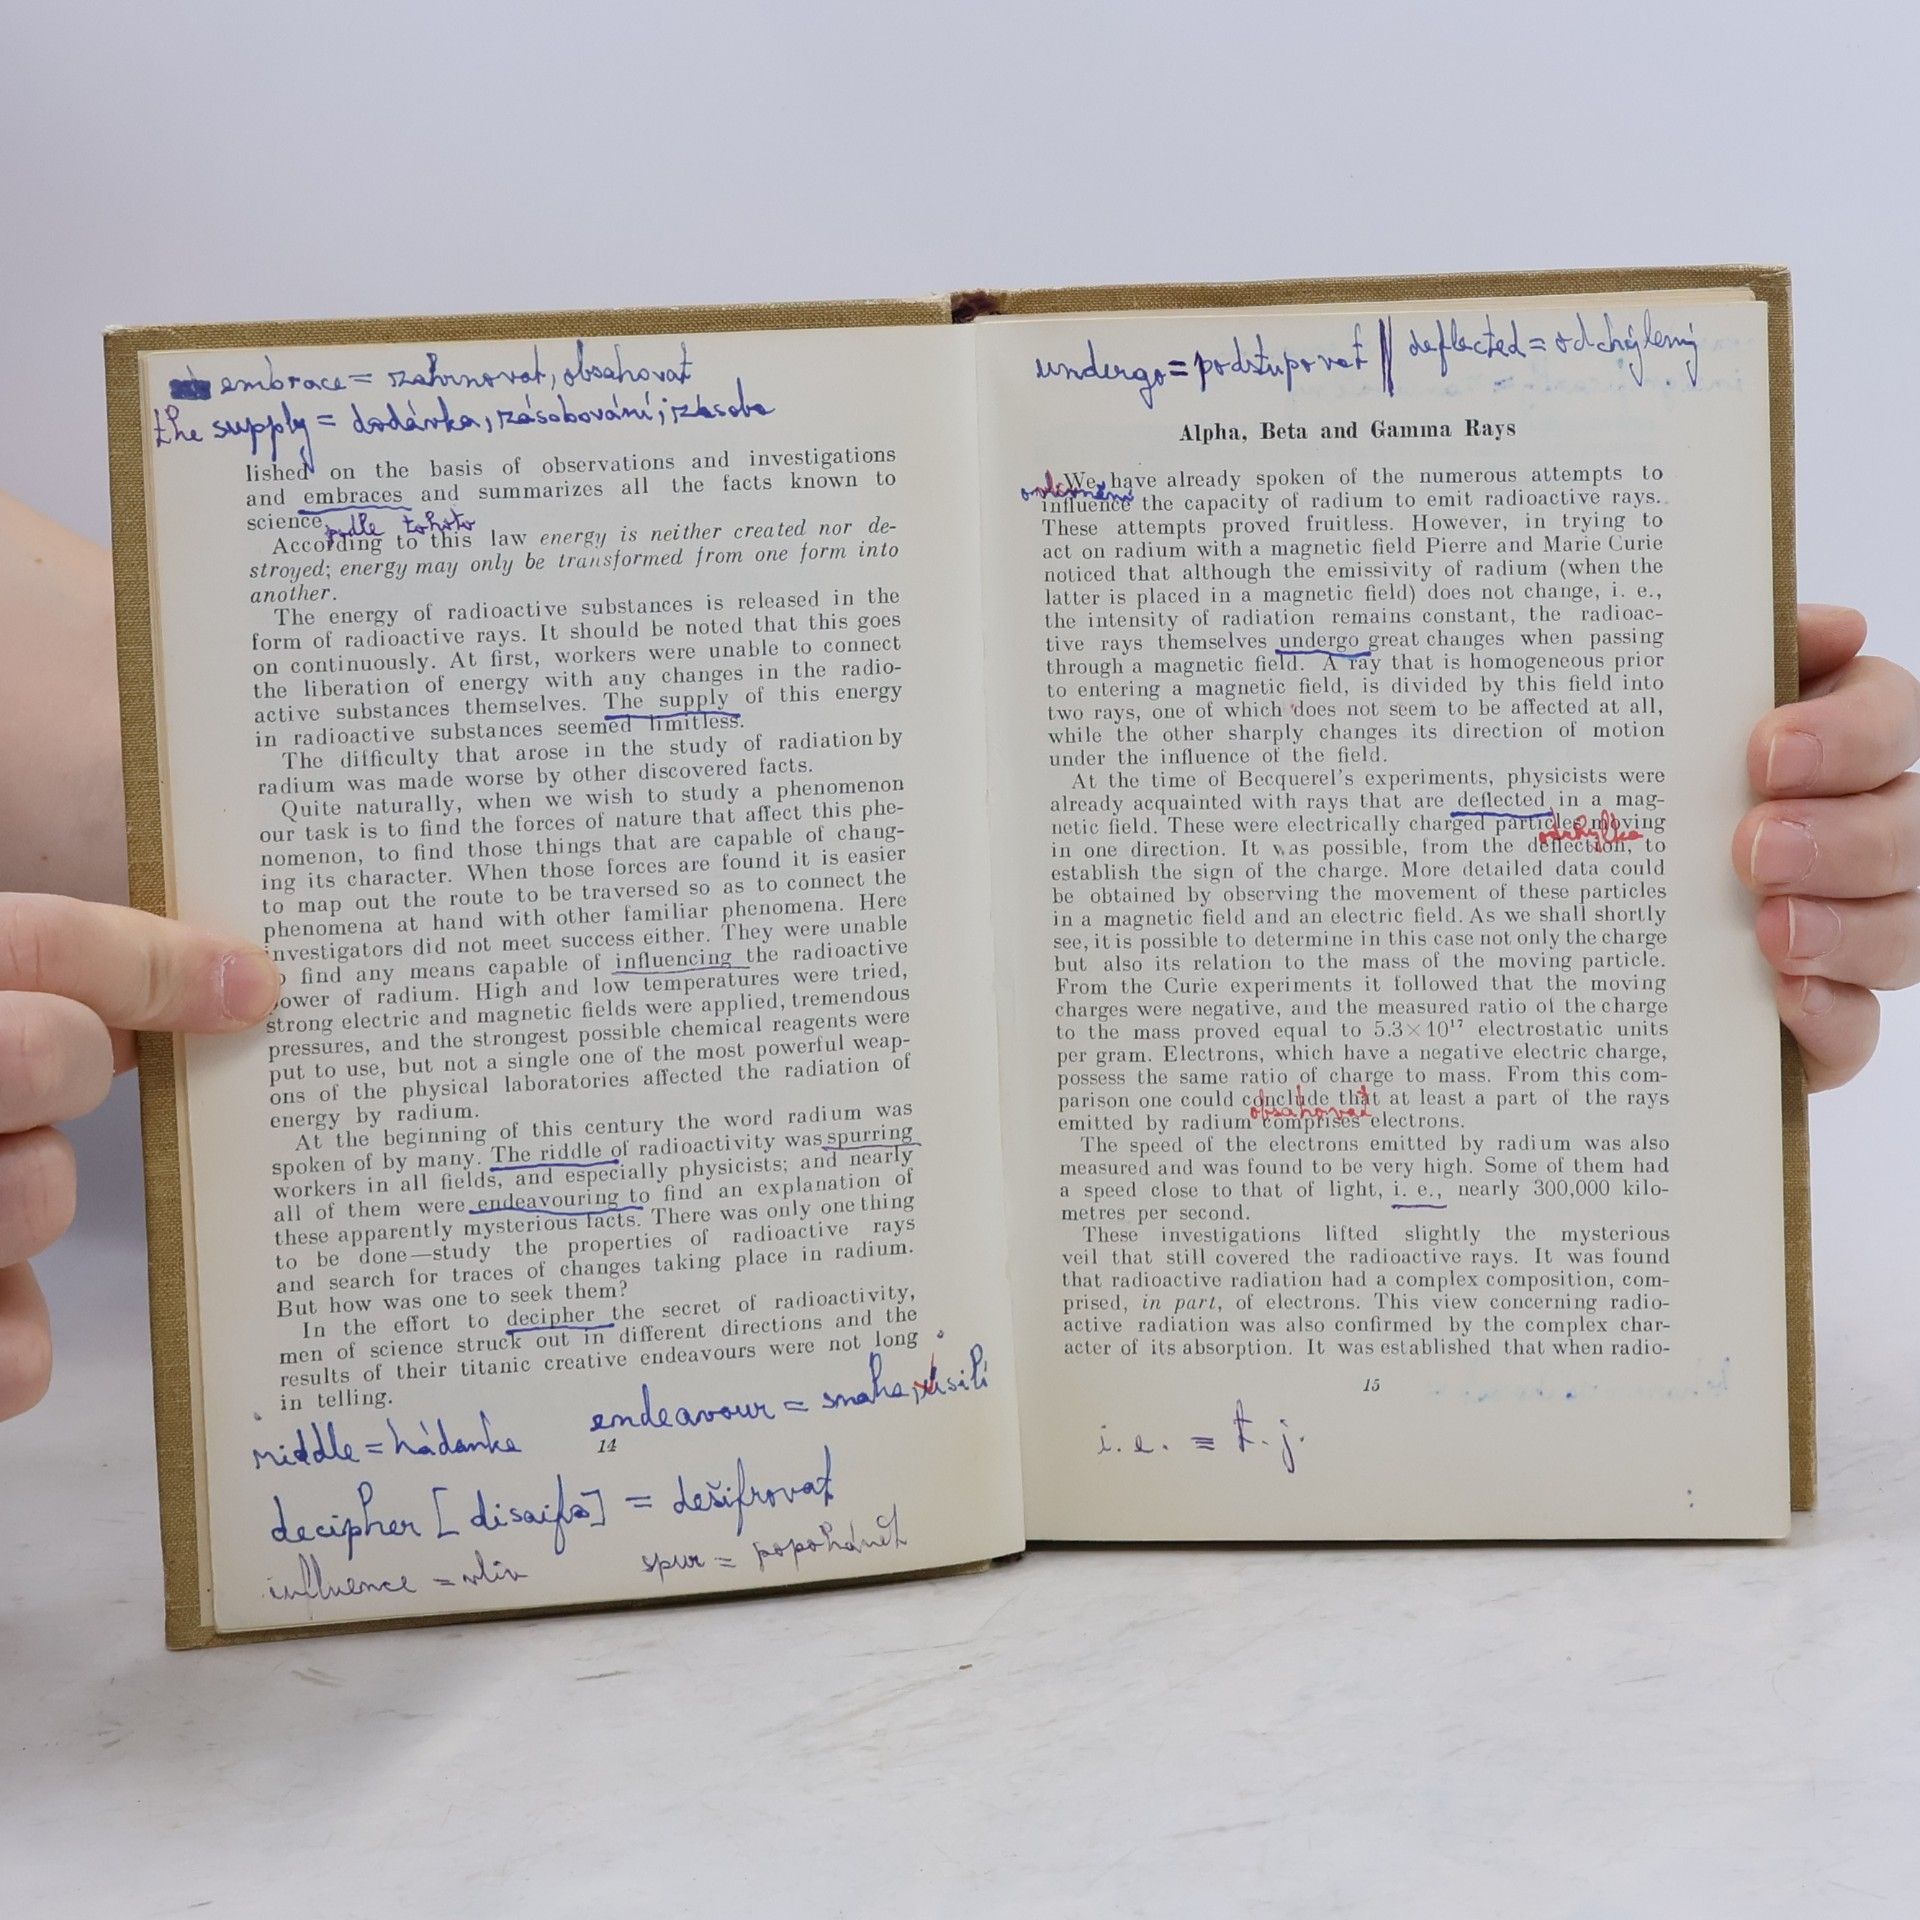 embrace = zahrnovat, obsahovat
the supply = dodávka, zásobování; zásoba
lished on the basis of observations and investigations
and embraces and summarizes all the facts known to
science.
podle tohoto
According to this law energy is neither created nor de-
stroyed; energy may only be transformed from one form into
another.
The energy of radioactive substances is released in the
form of radioactive rays. It should be noted that this goes
on continuously. At first, workers were unable to connect
the liberation of energy with any changes in the radio-
active substances themselves. The supply of this energy
in radioactive substances seemed limitless.
The difficulty that arose in the study of radiation by
radium was made worse by other discovered facts.
Quite naturally, when we wish to study a phenomenon
our task is to find the forces of nature that affect this phe-
nomenon, to find those things that are capable of chang-
ing its character. When those forces are found it is easier
to map out the route to be traversed so as to connect the
phenomena at hand with other familiar phenomena. Here
investigators did not meet success either. They were unable
find any means capable of influencing the radioactive
power of radium. High and low temperatures were tried,
strong electric and magnetic fields were applied, tremendous
pressures, and the strongest possible chemical reagents were
put to use, but not a single one of the most powerful weap-
ons of the physical laboratories affected the radiation of
energy by radium.
At the beginning of this century the word radium was
spoken of by many. The riddle of radioactivity was spurring
workers in all fields, and especially physicists; and nearly
all of them were endeavouring to find an explanation of
these apparently mysterious facts. There was only one thing
to be done—study the properties of radioactive rays
and search for traces of changes taking place in radium.
But how was one to seek them?
In the effort to decipher the secret of radioactivity,
men of science struck out in different directions and the
results of their titanic creative endeavours were not long
in telling.
endeavour = snaha, úsilí
riddle = hádanka
14
decipher [disaifə] = dešifrovat
influence = vliv spur = popohánět
undergo = podstupovat || deflected = odchýlený
Alpha, Beta and Gamma Rays
We have already spoken of the numerous attempts to
influence the capacity of radium to emit radioactive rays.
These attempts proved fruitless. However, in trying to
act on radium with a magnetic field Pierre and Marie Curie
noticed that although the emissivity of radium (when the
latter is placed in a magnetic field) does not change, i. e.,
the intensity of radiation remains constant, the radioac-
tive rays themselves undergo great changes when passing
through a magnetic field. A ray that is homogeneous prior
to entering a magnetic field, is divided by this field into
two rays, one of which does not seem to be affected at all,
while the other sharply changes its direction of motion
under the influence of the field.
At the time of Becquerel's experiments, physicists were
already acquainted with rays that are deflected in a mag-
netic field. These were electrically charged particles moving
odchylka
in one direction. It was possible, from the deflection, to
establish the sign of the charge. More detailed data could
be obtained by observing the movement of these particles
in a magnetic field and an electric field. As we shall shortly
see, it is possible to determine in this case not only the charge
but also its relation to the mass of the moving particle.
From the Curie experiments it followed that the moving
charges were negative, and the measured ratio of the charge
to the mass proved equal to 5.3×10¹⁷ electrostatic units
per gram. Electrons, which have a negative electric charge,
possess the same ratio of charge to mass. From this com-
parison one could conclude that at least a part of the rays
obsahovat
emitted by radium comprises electrons.
The speed of the electrons emitted by radium was also
measured and was found to be very high. Some of them had
a speed close to that of light, i. e., nearly 300,000 kilo-
metres per second.
These investigations lifted slightly the mysterious
veil that still covered the radioactive rays. It was found
that radioactive radiation had a complex composition, com-
prised, in part, of electrons. This view concerning radio-
active radiation was also confirmed by the complex char-
acter of its absorption. It was established that when radio-
15
i. e. ≡ t. j.